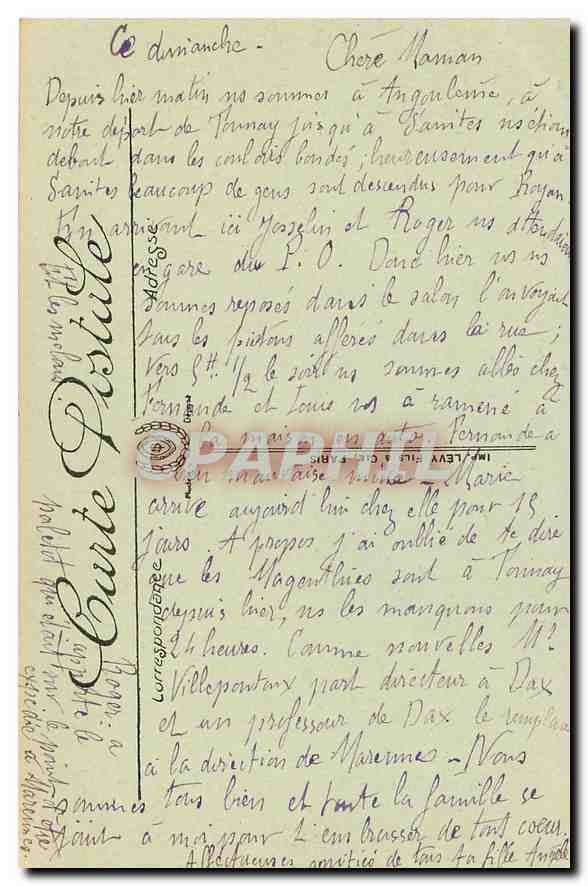 Ce dimanche - Chère Maman
Depuis hier matin ns sommes à Angoulème, à
notre départ de Tonnay jusqu'à Saintes ns étions
debout dans les couloirs bondés; heureusement qu'à
Saintes beaucoup de gens sont descendus pour Royan.
En arrivant ici Josselin et Roger ns attendaient
en gare du P.O. Donc hier ns ns
sommes reposés dans le salon l'on voyait
tous les piétons affairés dans la rue;
vers 5H 1/2 le soir ns sommes allés chez
Fernande et Louis ns à ramené à
la maison en auto, Fernande a
bien mauvaise mine - Marie
arrive aujourd'hui chez elle pour 15
jours. A propos j'ai oublié de te dire
que les Magenthies sont à Tonnay
depuis hier, ns les manquons pour
24 heures. Comme nouvelles Mr
Villepontoux part directeur à Dax
et un professeur de Dax le remplace
à la direction de Marennes - Nous
sommes tous bien et toute la famille se
joint à moi pour t'embrasser de tout coeur.
Affectueuses amitiés de tous ta fille Angèle
et les melons
Roger a
apporté le
paletot qui était sur le point d'être
expédié à Marennes.
Carte Postale
Correspondance
Adresse
IMP. LÉVY FILS & CIE, PARIS
©PAPHIL